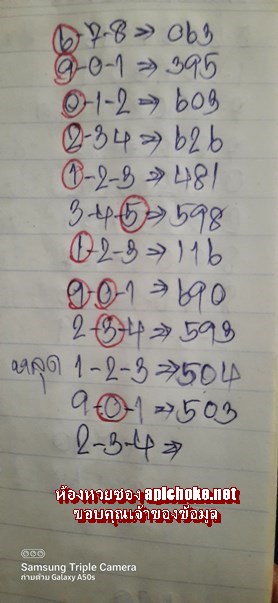 6-7-8 ⇒ 063
9-0-1 ⇒ 395
0-1-2 ⇒ 603
2-3-4 ⇒ 626
1-2-3 ⇒ 481
3-4-5 ⇒ 598
1-2-3 ⇒ 116
9-0-1 ⇒ 690
2-3-4 ⇒ 593
หลุด 1-2-3 ⇒ 504
9-0-1 ⇒ 503
2-3-4 ⇒
ห้องหวยซอง apichoke.net
ขอบคุณเจ้าของข้อมูล
Samsung Triple Camera
ถ่ายด้วย Galaxy A50s